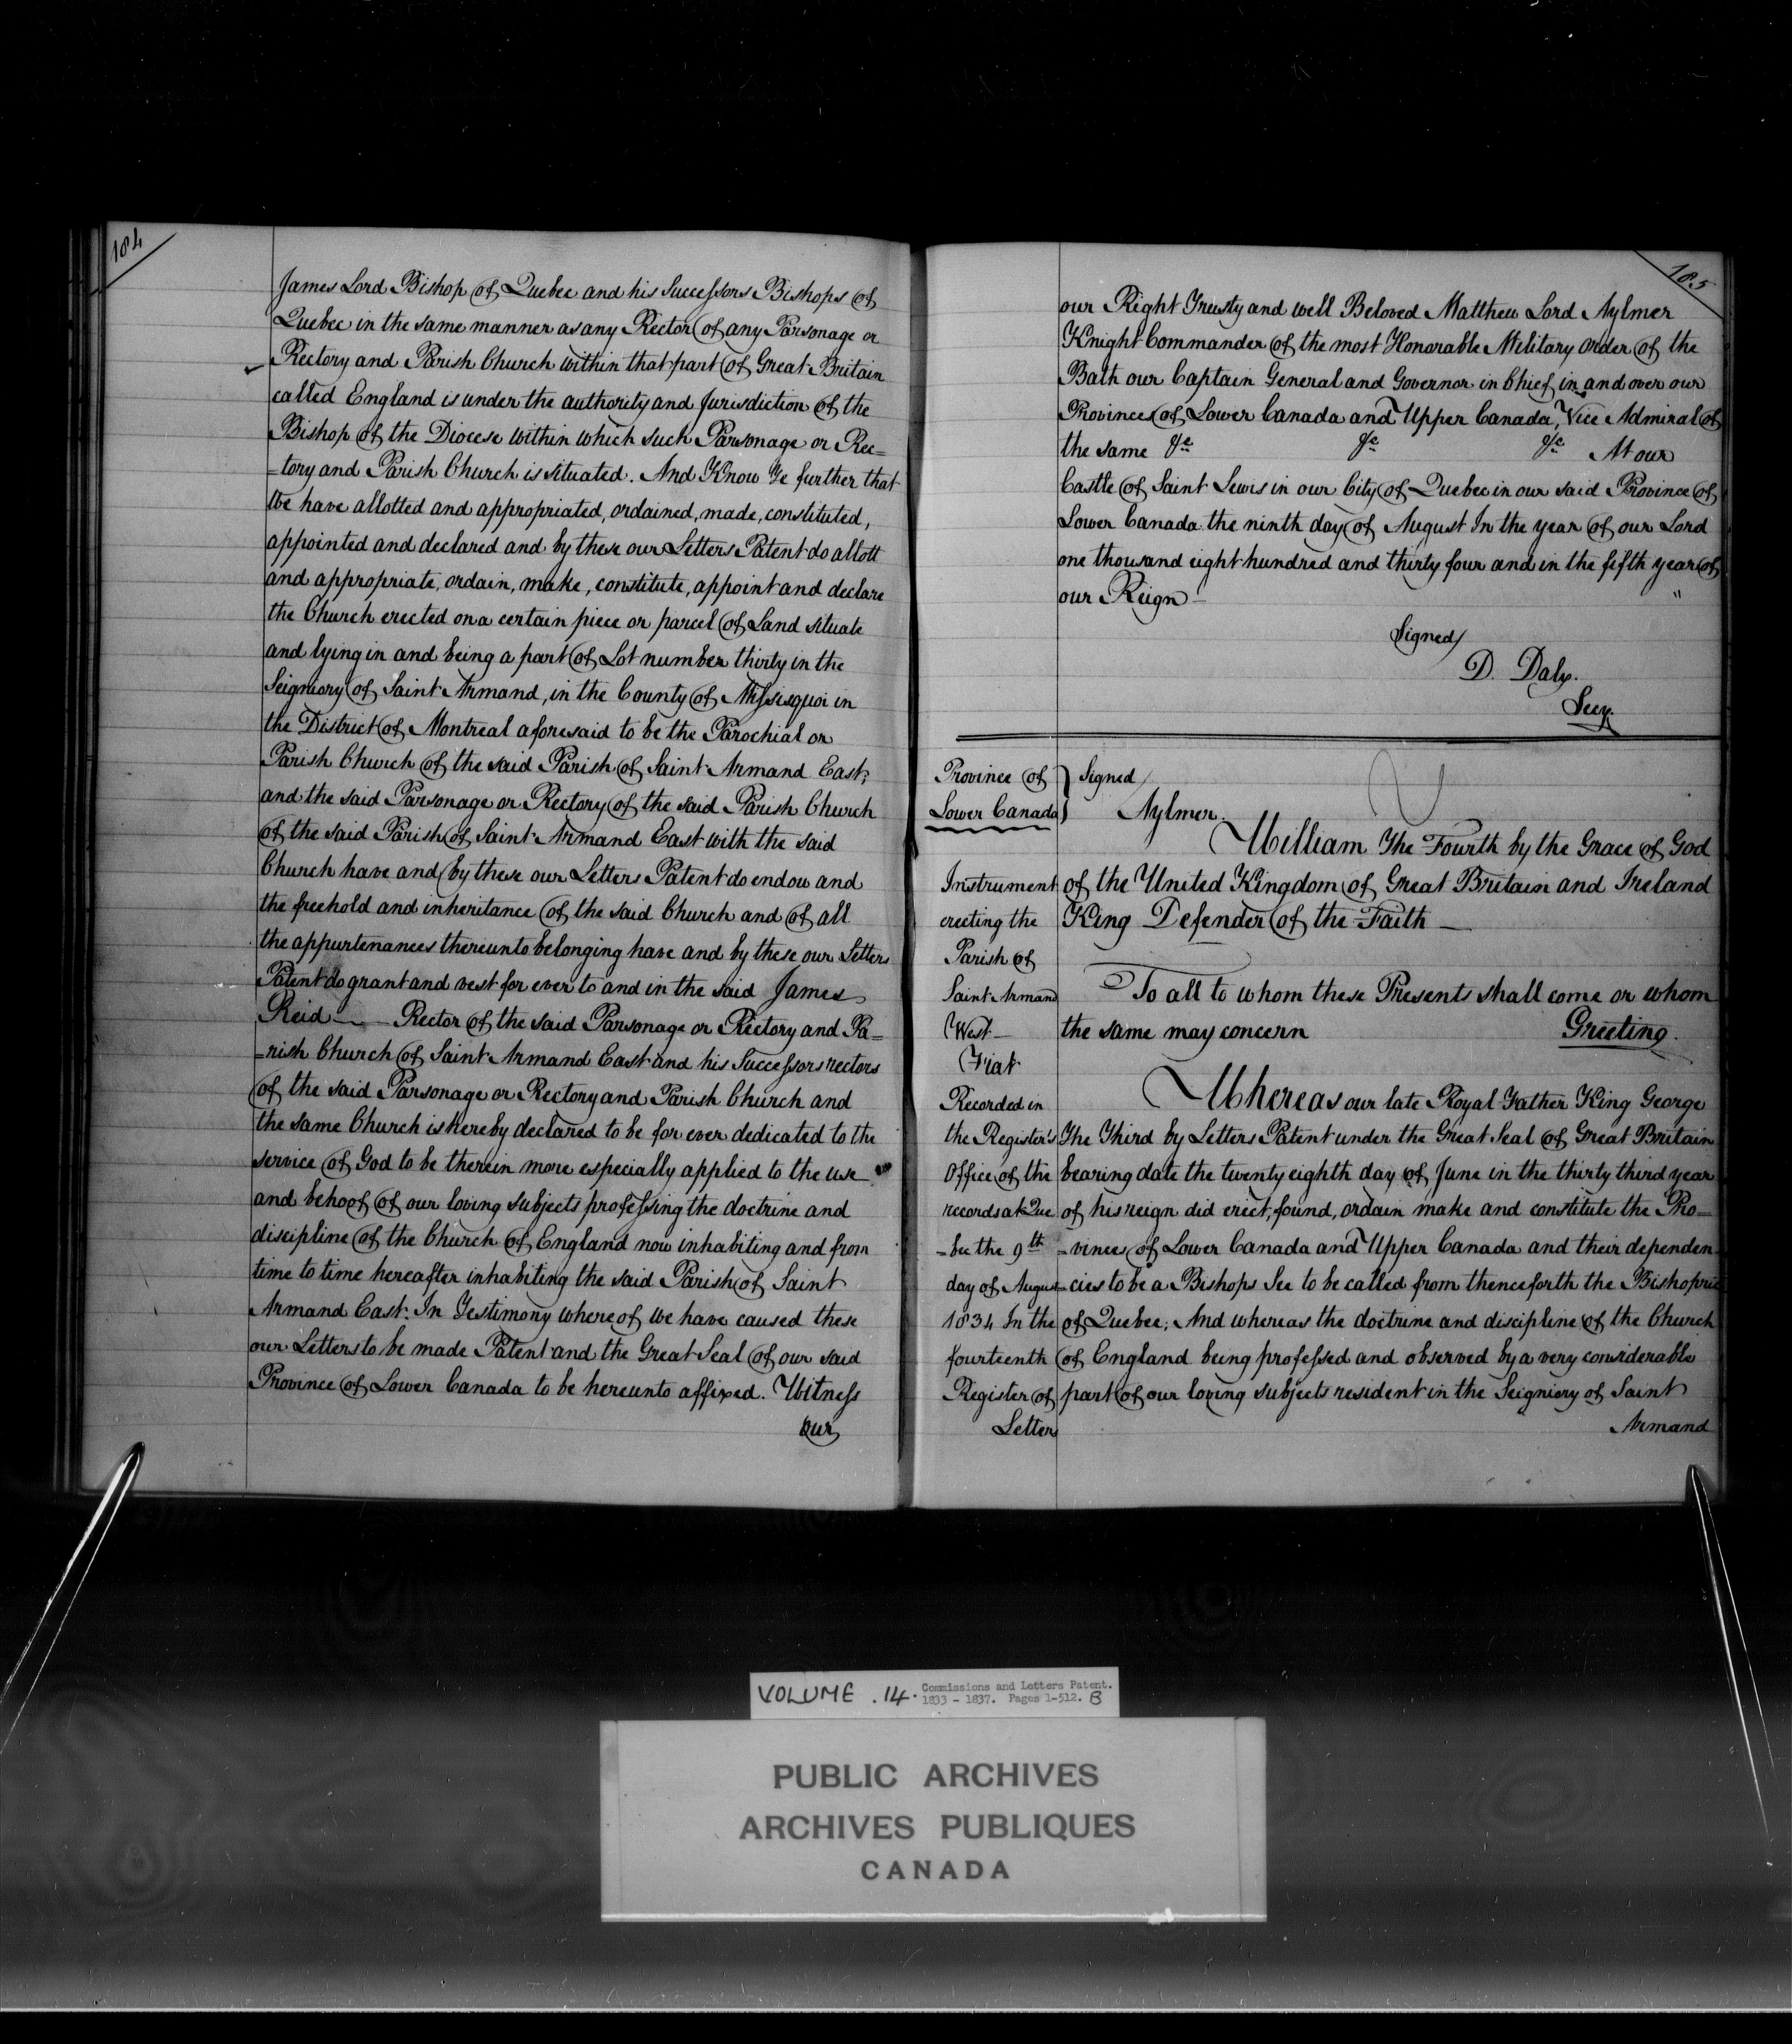 184
James Lord Bishop of Quebec and his Successors Bishops of
Quebec in the same manner as any Rector of any Parsonage or
Rectory and Parish Church within that part of Great Britain
called England is under the authority and Jurisdiction of the
Bishop of the Diocese within which such Parsonage or Rec=
=tory and Parish Church is situated. And Know Ye further that
We have allotted and appropriated, ordained, made, constituted,
appointed and declared and by these our Letters Patent do allott
and appropriate, ordain, make, constitute, appoint and declare
the Church erected on a certain piece or parcel of Land situate
and lying in and being a part of Lot number thirty in the
Seigniory of Saint Armand, in the County of Missisquoi in
the District of Montreal aforesaid to be the Parochial or
Parish Church of the said Parish of Saint Armand East;
and the said Parsonage or Rectory of the said Parish Church
of the said Parish of Saint Armand East with the said
Church have and by these our Letters Patent do endow and
the freehold and inheritance of the said Church and of all
the appurtenances thereunto belonging have and by these our Letters
Patent do grant and vest for ever to and in the said James
Reid — Rector of the said Parsonage or Rectory and Pa=
=rish Church of Saint Armand East and his Successors rectors
of the said Parsonage or Rectory and Parish Church and
the same Church is hereby declared to be for ever dedicated to the
service of God to be therein more especially applied to the use
and behoof of our loving subjects professing the doctrine and
discipline of the Church of England now inhabiting and from
time to time hereafter inhabiting the said Parish of Saint
Armand East. In Testimony whereof We have caused these
our Letters to be made Patent and the Great Seal of our said
Province of Lower Canada to be hereunto affixed. Witness
Our
185
our Right Trusty and well Beloved Matthew Lord Aylmer
Knight Commander of the most Honorable Military Order of the
Bath our Captain General and Governor in Chief in and over our
Provinces of Lower Canada and Upper Canada, Vice Admiral of
the same &c &c &c At our
Castle of Saint Lewis in our City of Quebec in our said Province of
Lower Canada the ninth day of August In the year of our Lord
one thousand eight hundred and thirty four and in the fifth year of
our Reign —
Signed/
D. Daly.
Secy.
Province of
Lower Canada
Signed/
Aylmer.
William The Fourth by the Grace of God
of the United Kingdom of Great Britain and Ireland
King Defender of the Faith —
To all to whom these Presents shall come or whom
the same may concern Greeting.
Instrument
erecting the
Parish of
Saint Armand
West —
Fiat
Recorded in
the Register's
Office of the
records at Que
=bec the 9th
day of August
1834 In the
fourteenth
Register of
Letters
Whereas our late Royal Father King George
The Third by Letters Patent under the Great Seal of Great Britain
bearing date the twenty eighth day of June in the thirty third year
of his reign did erect, found, ordain make and constitute the Pro=
=vinces of Lower Canada and Upper Canada and their dependen
cies to be a Bishops See to be called from thenceforth the Bishopric
of Quebec; And whereas the doctrine and discipline of the Church
of England being professed and observed by a very considerable
part of our loving subjects resident in the Seigniory of Saint
Armand
VOLUME . 14. Commissions and Letters Patent.
1833 - 1837. Pages 1-512. B
PUBLIC ARCHIVES
ARCHIVES PUBLIQUES
CANADA